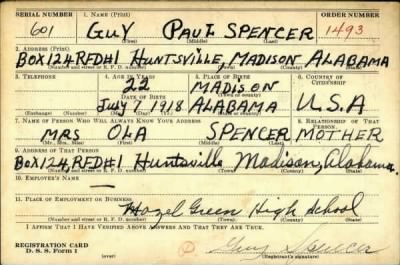 SERIAL NUMBER 1. NAME (Print) ORDER NUMBER
601 GUY PAUL SPENCER 1493
(First) (Middle) (Last)
2. ADDRESS (Print)
BOX124RFD#1 HUNTSVILLE, MADISON ALABAMA
(Number and street or R. F. D. number) (Town) (County) (State)
3. TELEPHONE 4. AGE IN YEARS 5. PLACE OF BIRTH 6. COUNTRY OF CITIZENSHIP
22 MADISON
DATE OF BIRTH (Town or county)
JULY 7 1918 ALABAMA U.S.A
(Exchange) (Number) (Mo.) (Day) (Yr.) (State or country)
7. NAME OF PERSON WHO WILL ALWAYS KNOW YOUR ADDRESS 8. RELATIONSHIP OF THAT PERSON
MRS OLA SPENCER MOTHER
(Mr., Mrs., Miss) (First) (Middle) (Last)
9. ADDRESS OF THAT PERSON
Box124,RFD#1 Huntsville Madison, Alabama.
(Number and street or R. F. D. number) (Town) (County) (State)
10. EMPLOYER'S NAME
—
11. PLACE OF EMPLOYMENT OR BUSINESS
Hazel Green High School
(Number and street or R. F. D. number) (Town) (County) (State)
I AFFIRM THAT I HAVE VERIFIED ABOVE ANSWERS AND THAT THEY ARE TRUE.
REGISTRATION CARD
D. S. S. Form 1 Guy Spencer
(Registrant's signature)